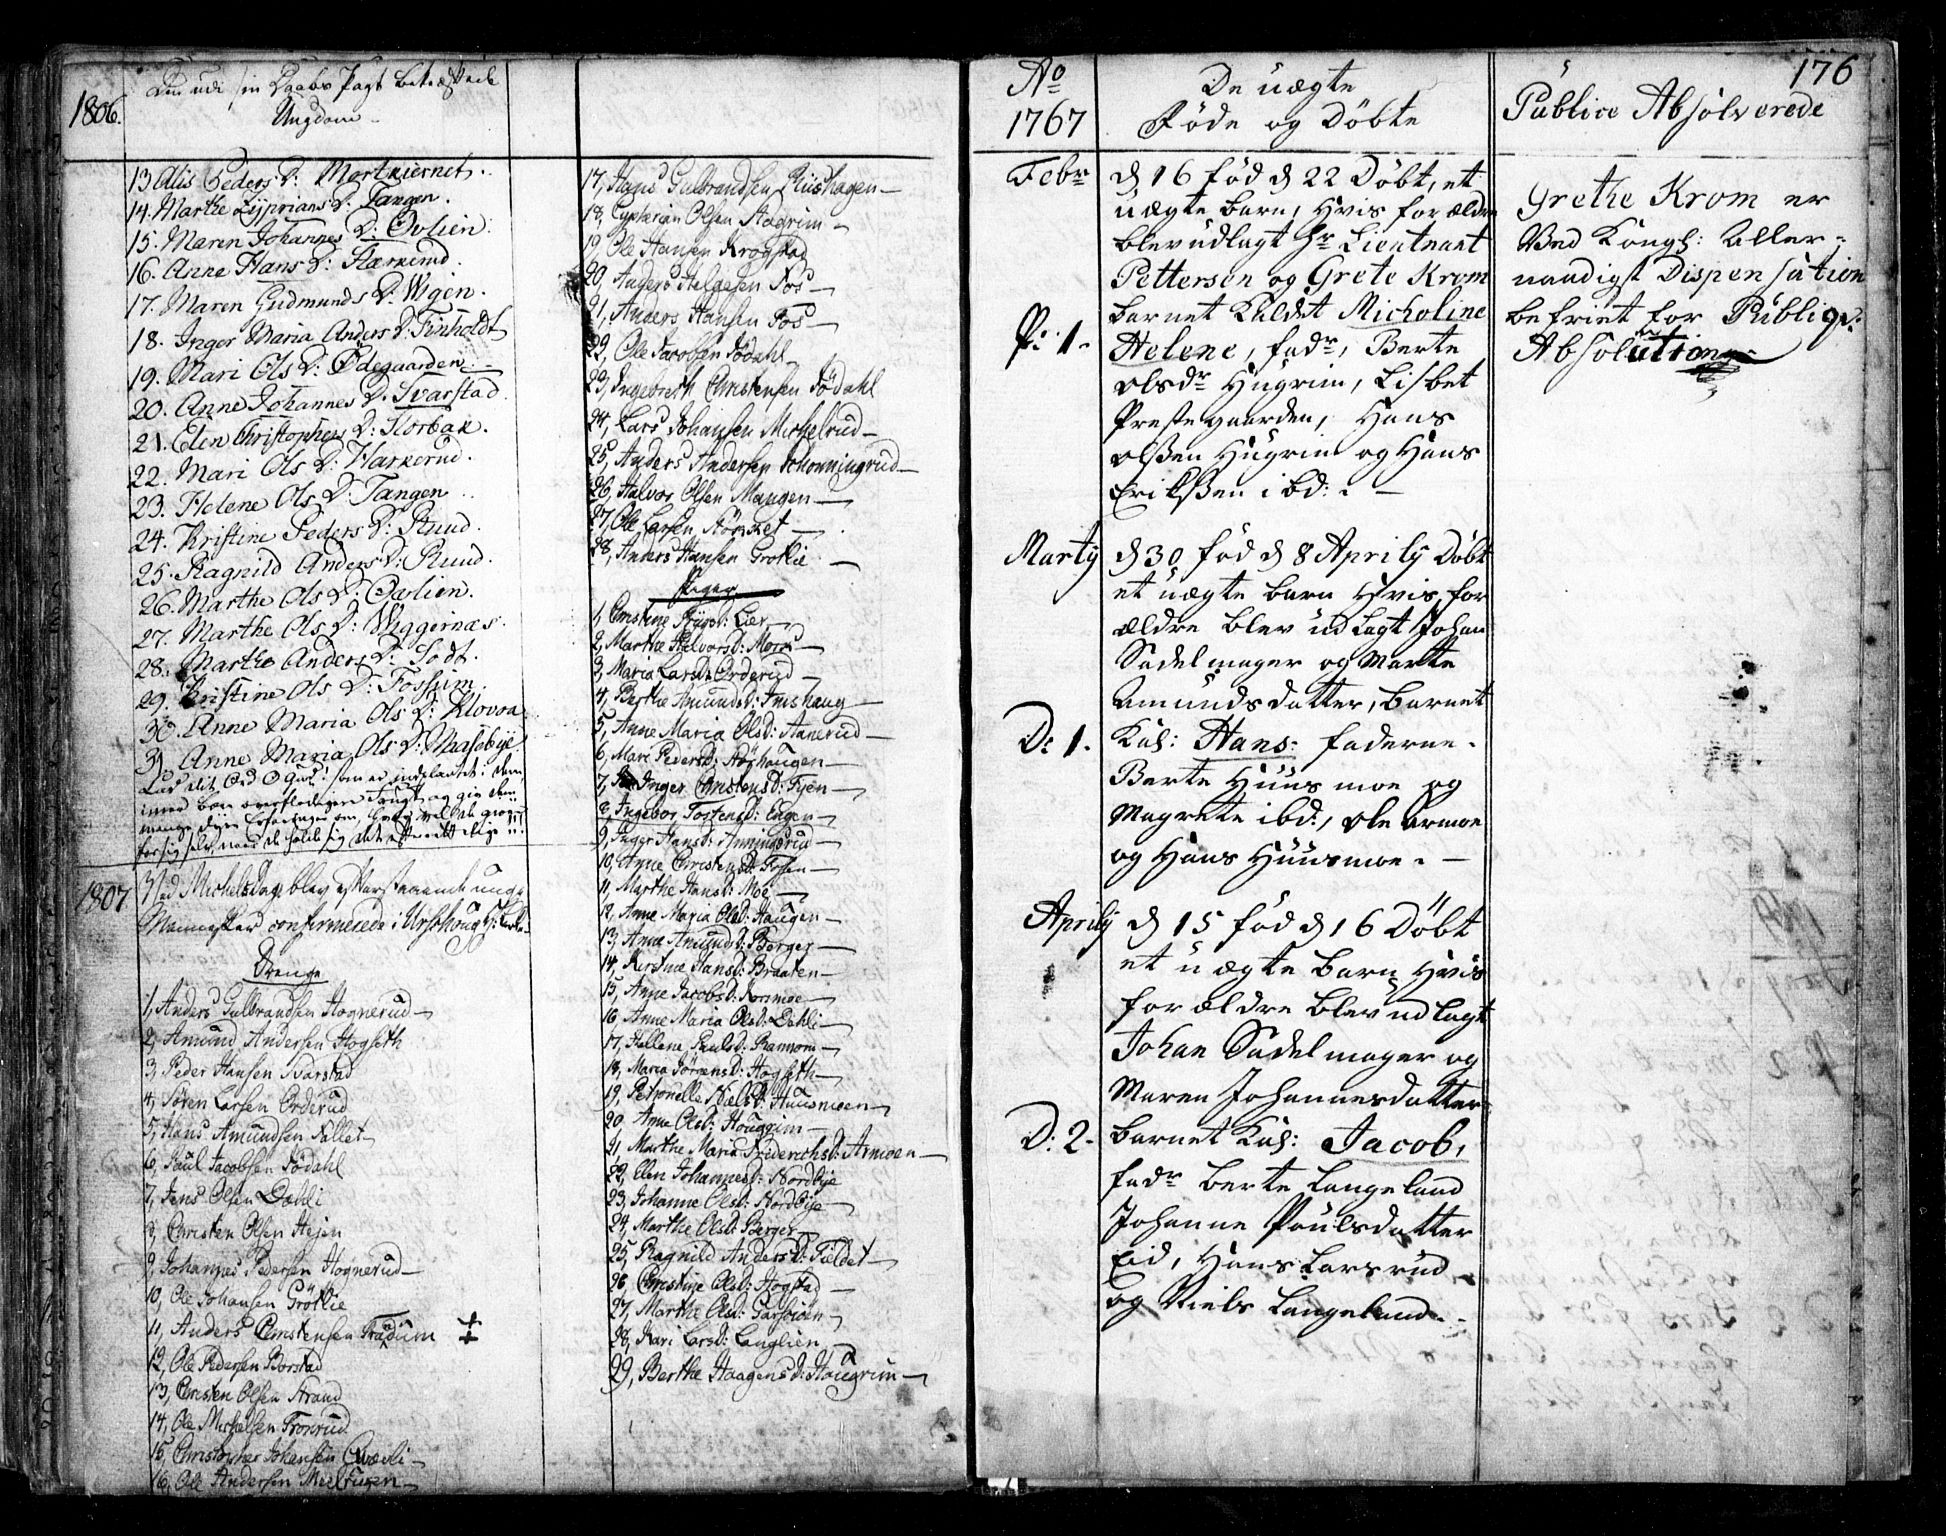 1806.
Den udi sin Daabs Pagt bekræftede
Ungdom
13 Alis Peders D: Mortkiernet.
14. Marthe Zyprians D: Tangen.
15. Maren Johannes D: Ovlien.
16. Anne Hans D: Harkerud.
17. Maren Gudmunds D: Wigen.
18. Inger Maria Anders D: Finholdt
19. Mari Ols D: Ødegaarden
20. Anne Johannes D. Svarstad.
21. Elen Christophers D: Horbak.
22. Mari Ols D: Harkerud.
23. Helene Ols D: Tangen.
24. Kristine Peders D: Ruud.
25. Ragnild Anders D: Ruud.
26. Marthe Ols D: Ovlien.
27. Marthe Ols D: Wiggernæs.
28. Marthe Anders D: Todt.
29. Kristine Ols D: Fossum.
30. Anne Maria Ols D: Klovoa
31. Anne Maria Ols D: Naasebye.
Lad dit Ord O Gud! som er indplantet i dem,
1807
Ved Michelsdag blev efterstaaende unge
Mennesker confirmerede i Urschoug H: Kirke
Drenge
1, Anders Gulbrandsen Hognerud
2, Amund Andersen Hogseth
3, Peder Hansen Svarstad
4, Søren Larsen Orderud
5, Hans Amundsen Nollet
6, Paul Jacobsen Sødahl
7, Jens Olsen Dæhli
8, Christen Olsen Hejen
9, Johannes Pedersen Hognerud
10, Ole Johansen Grøtlie
11, Anders Christensen Fradum
12, Ole Pedersen Borstad
13, Christen Olsen Strand
14, Ole Michelsen Fronrud
15, Christopher Johansen Qvævli
16, Ole Andersen Mielstuen
17, Hans Gulbrandsen Riishagen
18, Cyprian Olsen Hogrim
19, Ole Hansen Krogstad
20, Anders Helgesen Fos
21, Anders Hansen Fos
22, Ole Jacobsen Sødahl
23, Ingebreth Christensen Sødahl
24, Lars Johansen Michelrud
25, Anders Andersen Schonningrud
26, Halvor Olsen Mangen
27, Ole Larsen
28, Anders Hansen Grotlie
Piger
1, Christine D: Lier
2, Marthe Halvors D: Moen
3, Maria Lars D: Orderud
4, Berthe Amunds D: Friishaug
5, Anne Maria Ols D: Aanerud
6, Mari Peders D: Høghaugen
7, Inger Christens D: Tyen
8, Ingebor Tostens D: Engen
9, Inger Hans D: Anningsrud
10, Anne Christens D: Fossen
11, Marthe Hans D: Moe
12, Anne Maria Ols D: Haugen
13, Anne Amunds D: Berger
14, Kirstine Hans D: Braaten
15, Anne Jacobs D: Kornmoe
16, Anne Maria Ols D: Dæhli
17, Hellene Pauls D:
18, Maria Jørgens D: Hogseth
19, Petronelle Niels D: Huusmoen
20, Anne Ols D: Hougrim
21, Marthe Maria Frederichs D: Armoen
22, Elen Johannes D: Nordbye
23, Johanne Ols D: Nordbye
24, Marthe Ols D: Berger
25, Ragnild Anders D: Fieldet
26, Christine Ols D: Hogstad
27, Marthe Ols D:
28, Kari Lars D: Langlien
29, Berthe Haagens D: Hougrim
176
Ao
1767
De uægte
Føde og Døbte
Publice Absolverede
Febr
d 16 fød d 22 Døbt, et
uægte barn, hvis forældre
blev udlagt Hr Lieutnant
Pettersen og Grete Krom
barnet kaldet Micholine
Pi: 1.
Helene, fadr, Berte
olsdr Hugrim, Lisbet
Prestegaarden, Hans
olssen Hugrim og Hans
Erikssen ibd:
Grethe Krom er
Ved Kongl: Aller-
naadigst Dispensation
befriet for Publiqv:
Absolution
Martij
d 30 fød d 8 Aprily Døbt
et uægte barn hvis for
ældre blev udlagt Johan
Sadelmager og Marte
Amundsdatter, barnet
D: 1.
Kal: Hans. faderne.
Berte Huusmoe og
Magrete ibd:, ole armoe
og Hans Huusmoe.
Aprily
d 15 fød d 16 Døbt
et uægte barn hvis
forældre blev udlagt
Johan Sadelmager og
Maren Johannesdatter
D: 2.
barnet Kal: Jacob,
fadr berte Langeland
Johanne Poulsdatter
Eid, Hans Larsrud
og Niels Langeland.